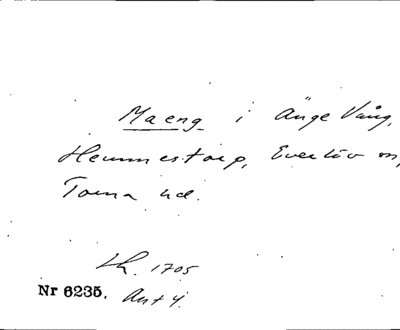 Maeng i Änge Vång,
Hemmestorp, Everlöv sn,
Torna hd.
Lh. 1705
Nr 6235. Ant 4.